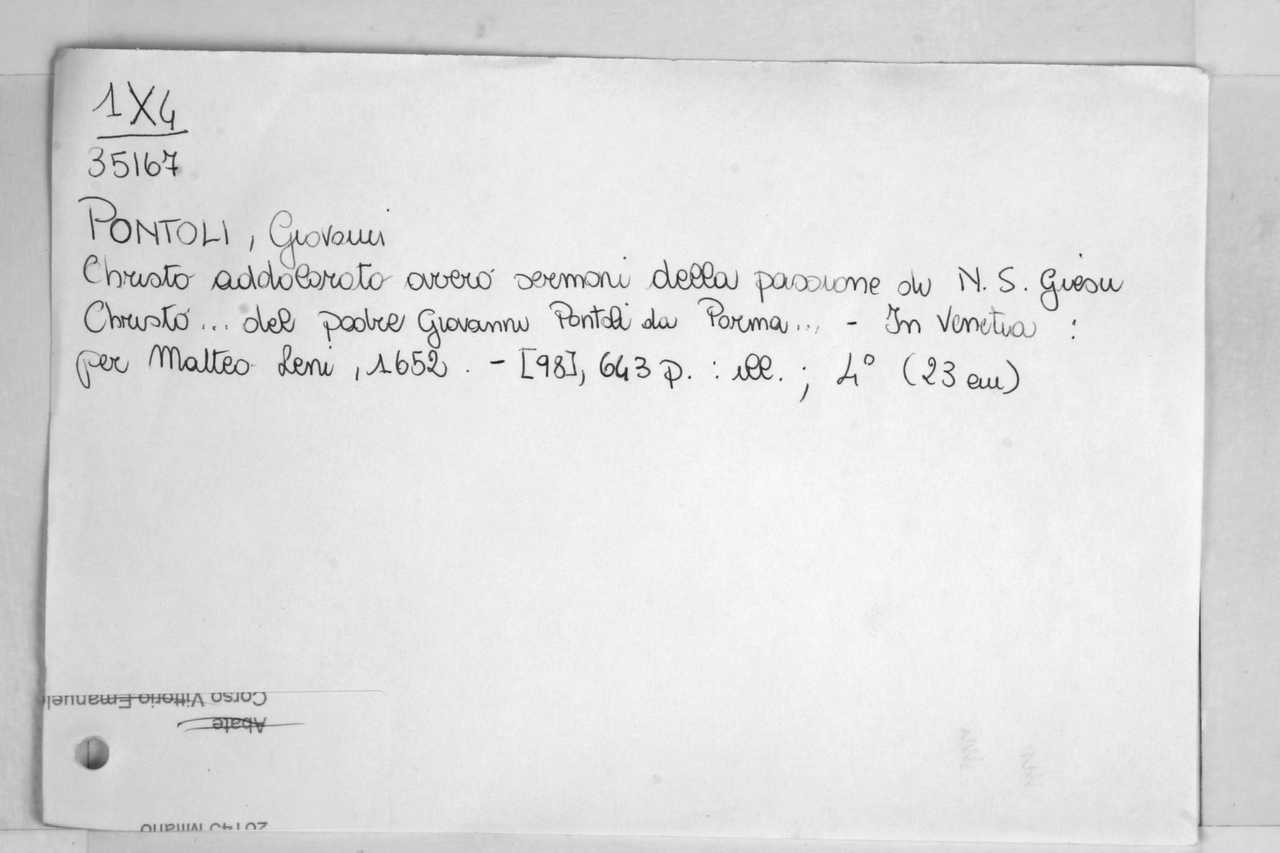 1X4
35167
PONTOLI, Giovanni
Christo addolorato overo sermoni della passione di N. S. Giesu
Christo... del padre Giovanni Pontoli da Parma... - In Venetia :
per Matteo Leni, 1652. - [98], 643 p. : ill. ; 4° (23 cm)
Corso Vittorio Emanuele
Abate
20145 Milano